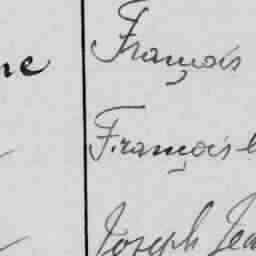 ne François
François
Joseph Jea